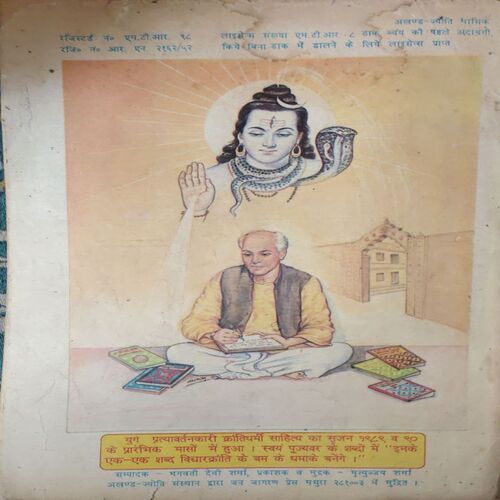 अखण्ड-ज्योति मासिक
रजिस्टर्ड नं० एम.टी.आर. ९८ लाइसेन्स संख्या एम.टी.आर.-८ डाक व्यय की पहले अदायगी
रजि० नं० आर. एन २१६२/५२ किये बिना डाक में डालने के लिये लाइसेन्स प्राप्त
युग प्रत्यावर्तनकारी क्रांतिधर्मी साहित्य का सृजन १९८९ व ९०
के प्रारंभिक मासों में हुआ । स्वयं पूज्यवर के शब्दों में "इनके
एक-एक शब्द विचारक्रांति के बम के धमाके बनेंगे ।"
सम्पादक - भगवती देवी शर्मा, प्रकाशक व मुद्रक - मृत्युञ्जय शर्मा
अखण्ड-ज्योति संस्थान द्वारा जन जागरण प्रेस मथुरा २८१००३ में मुद्रित ।